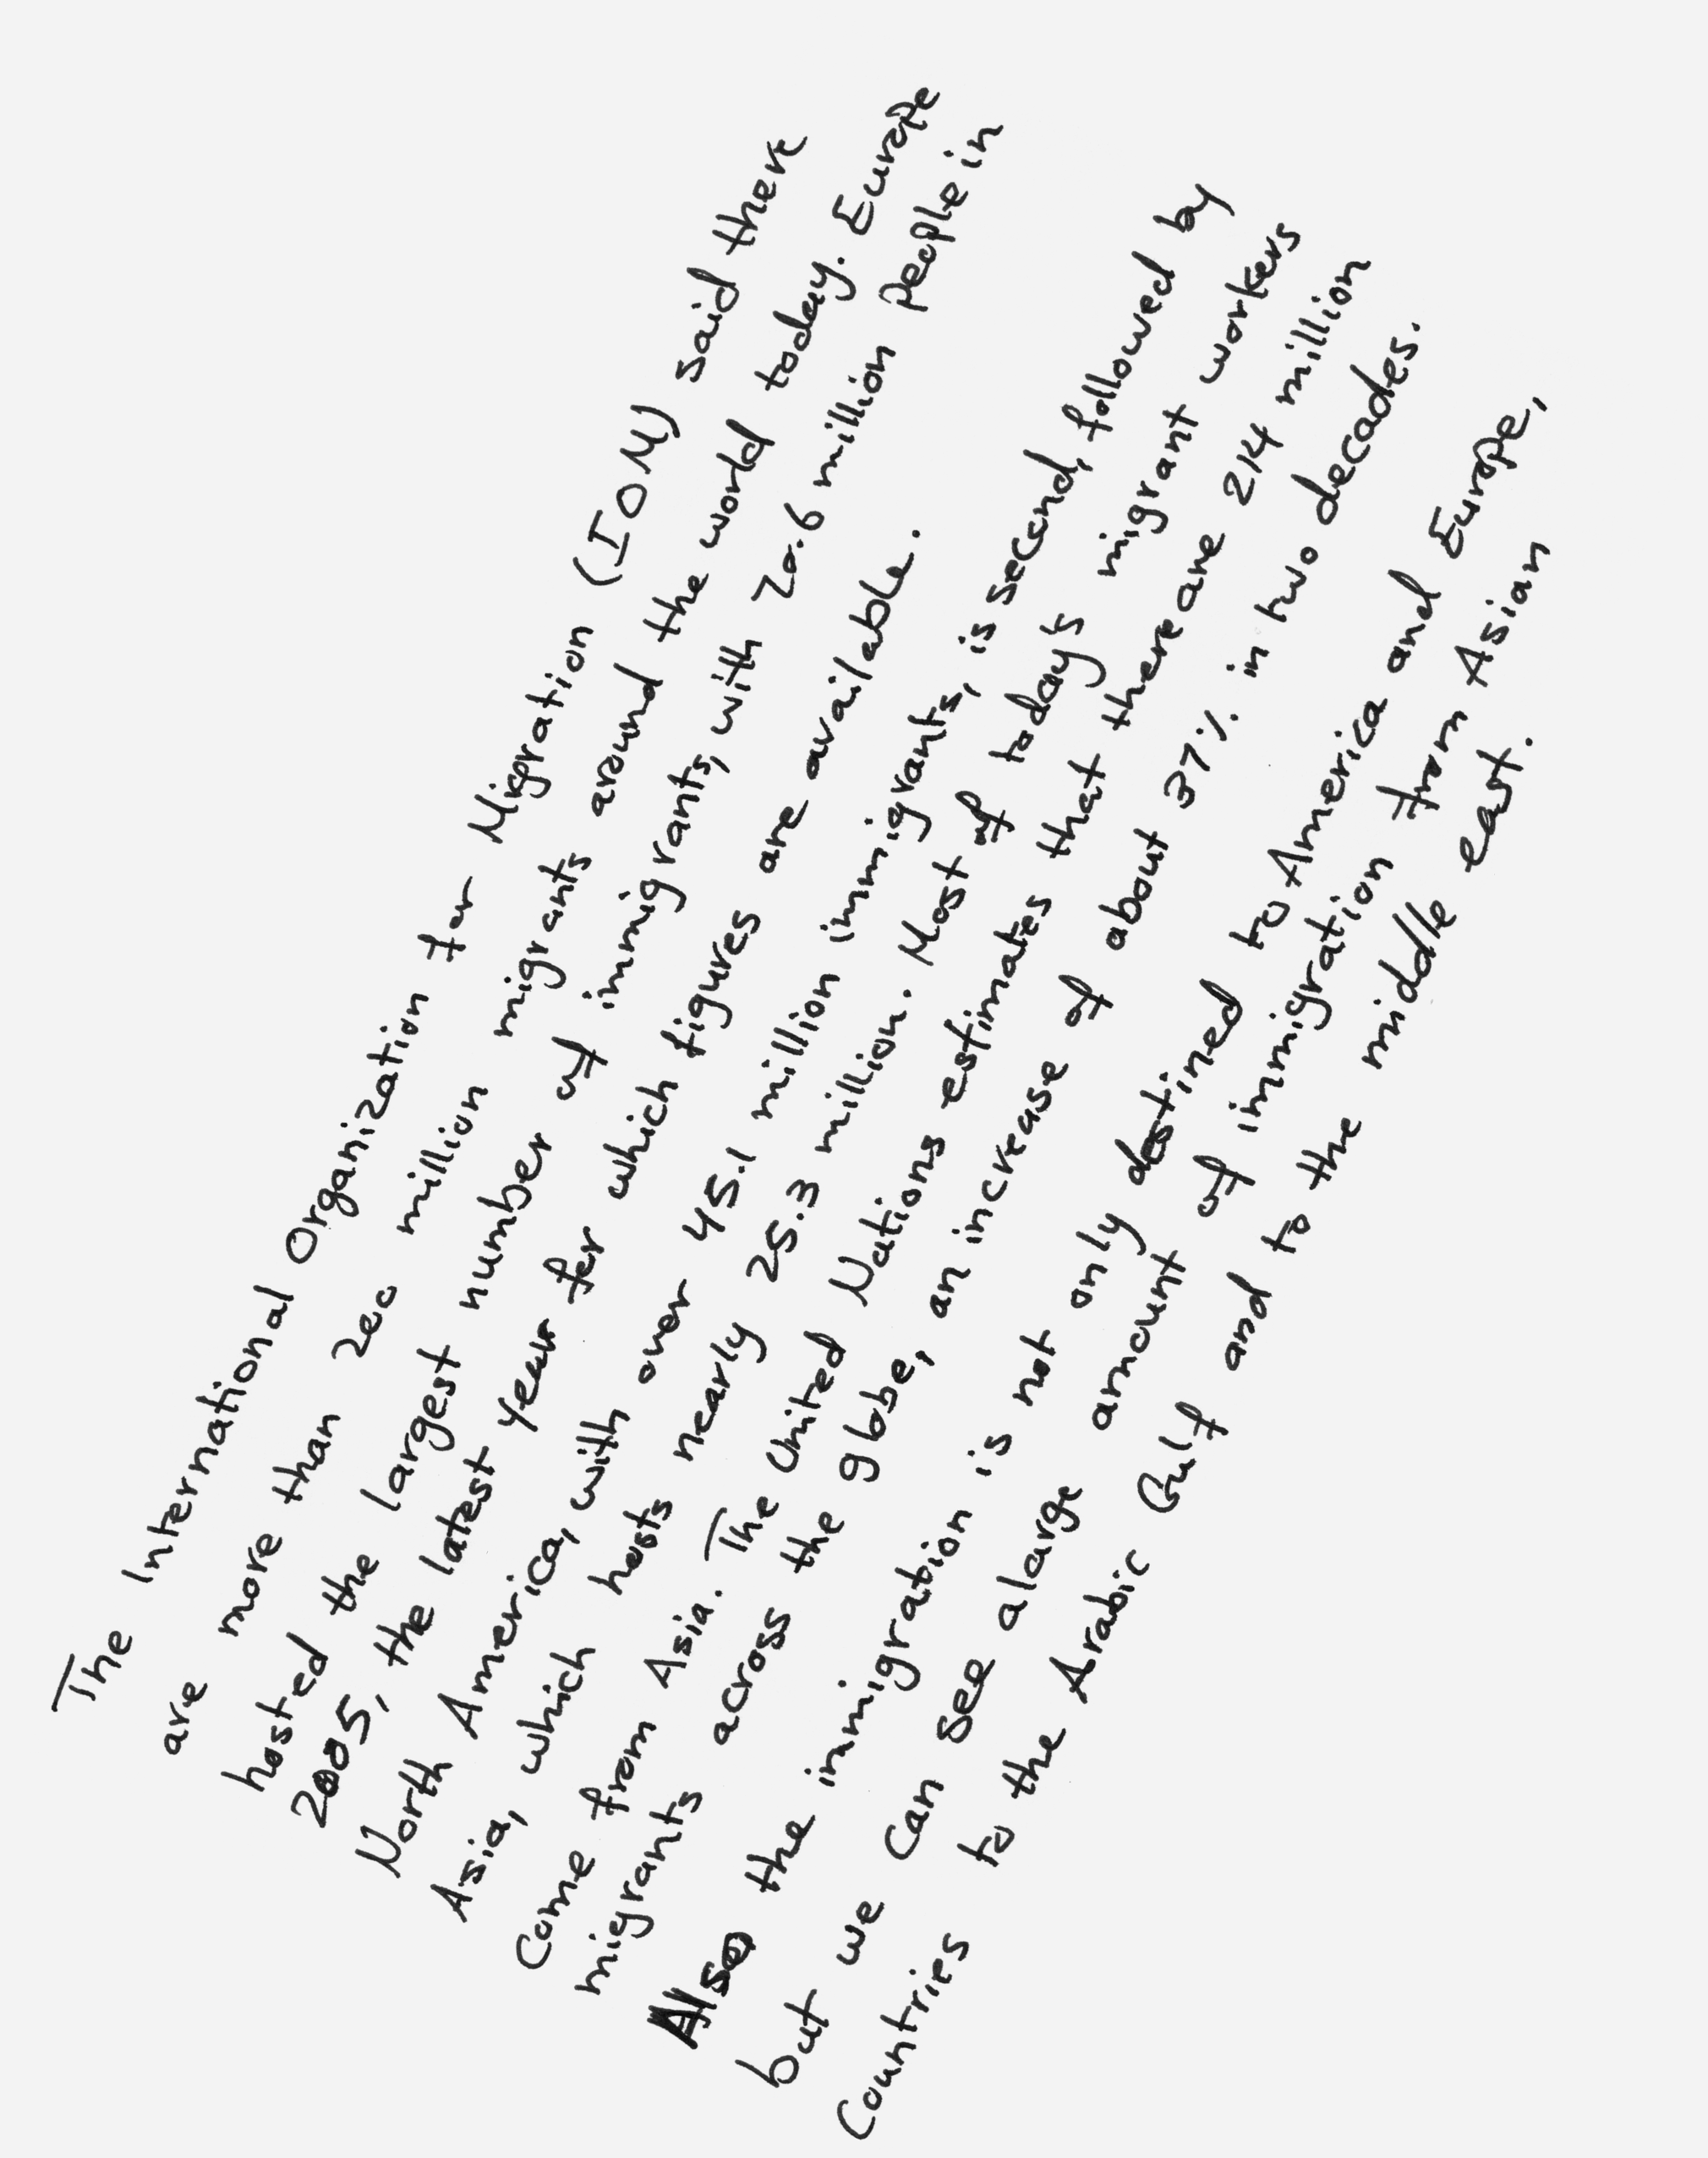 The International Organization for Migration (IOM) said there
are more than 200 million migrants around the world today. Europe
hosted the largest number of immigrants, with 70.6 million people in
2005, the latest year for which figures are available.
North America, with over 45.1 million immigrants, is second, followed by
Asia, which hosts nearly 25.3 million. Most of today's migrant workers
come from Asia. The United Nations estimates that there are 214 million
migrants across the globe, an increase of about 37% in two decades.
Also the immigration is not only destined to America and Europe,
but we can see a large amount of immigration from Asian
Countries to the Arabic Gulf and to the middle east.